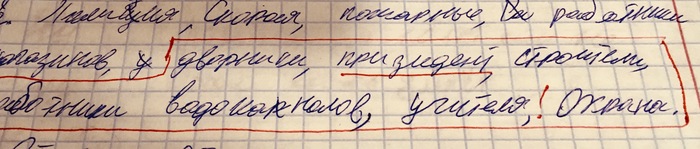 Полиция, Скорая, пожарные, работники
агазинов, дворники, призидент, строители,
аботники водоканалов, учителя, ! Охрана.